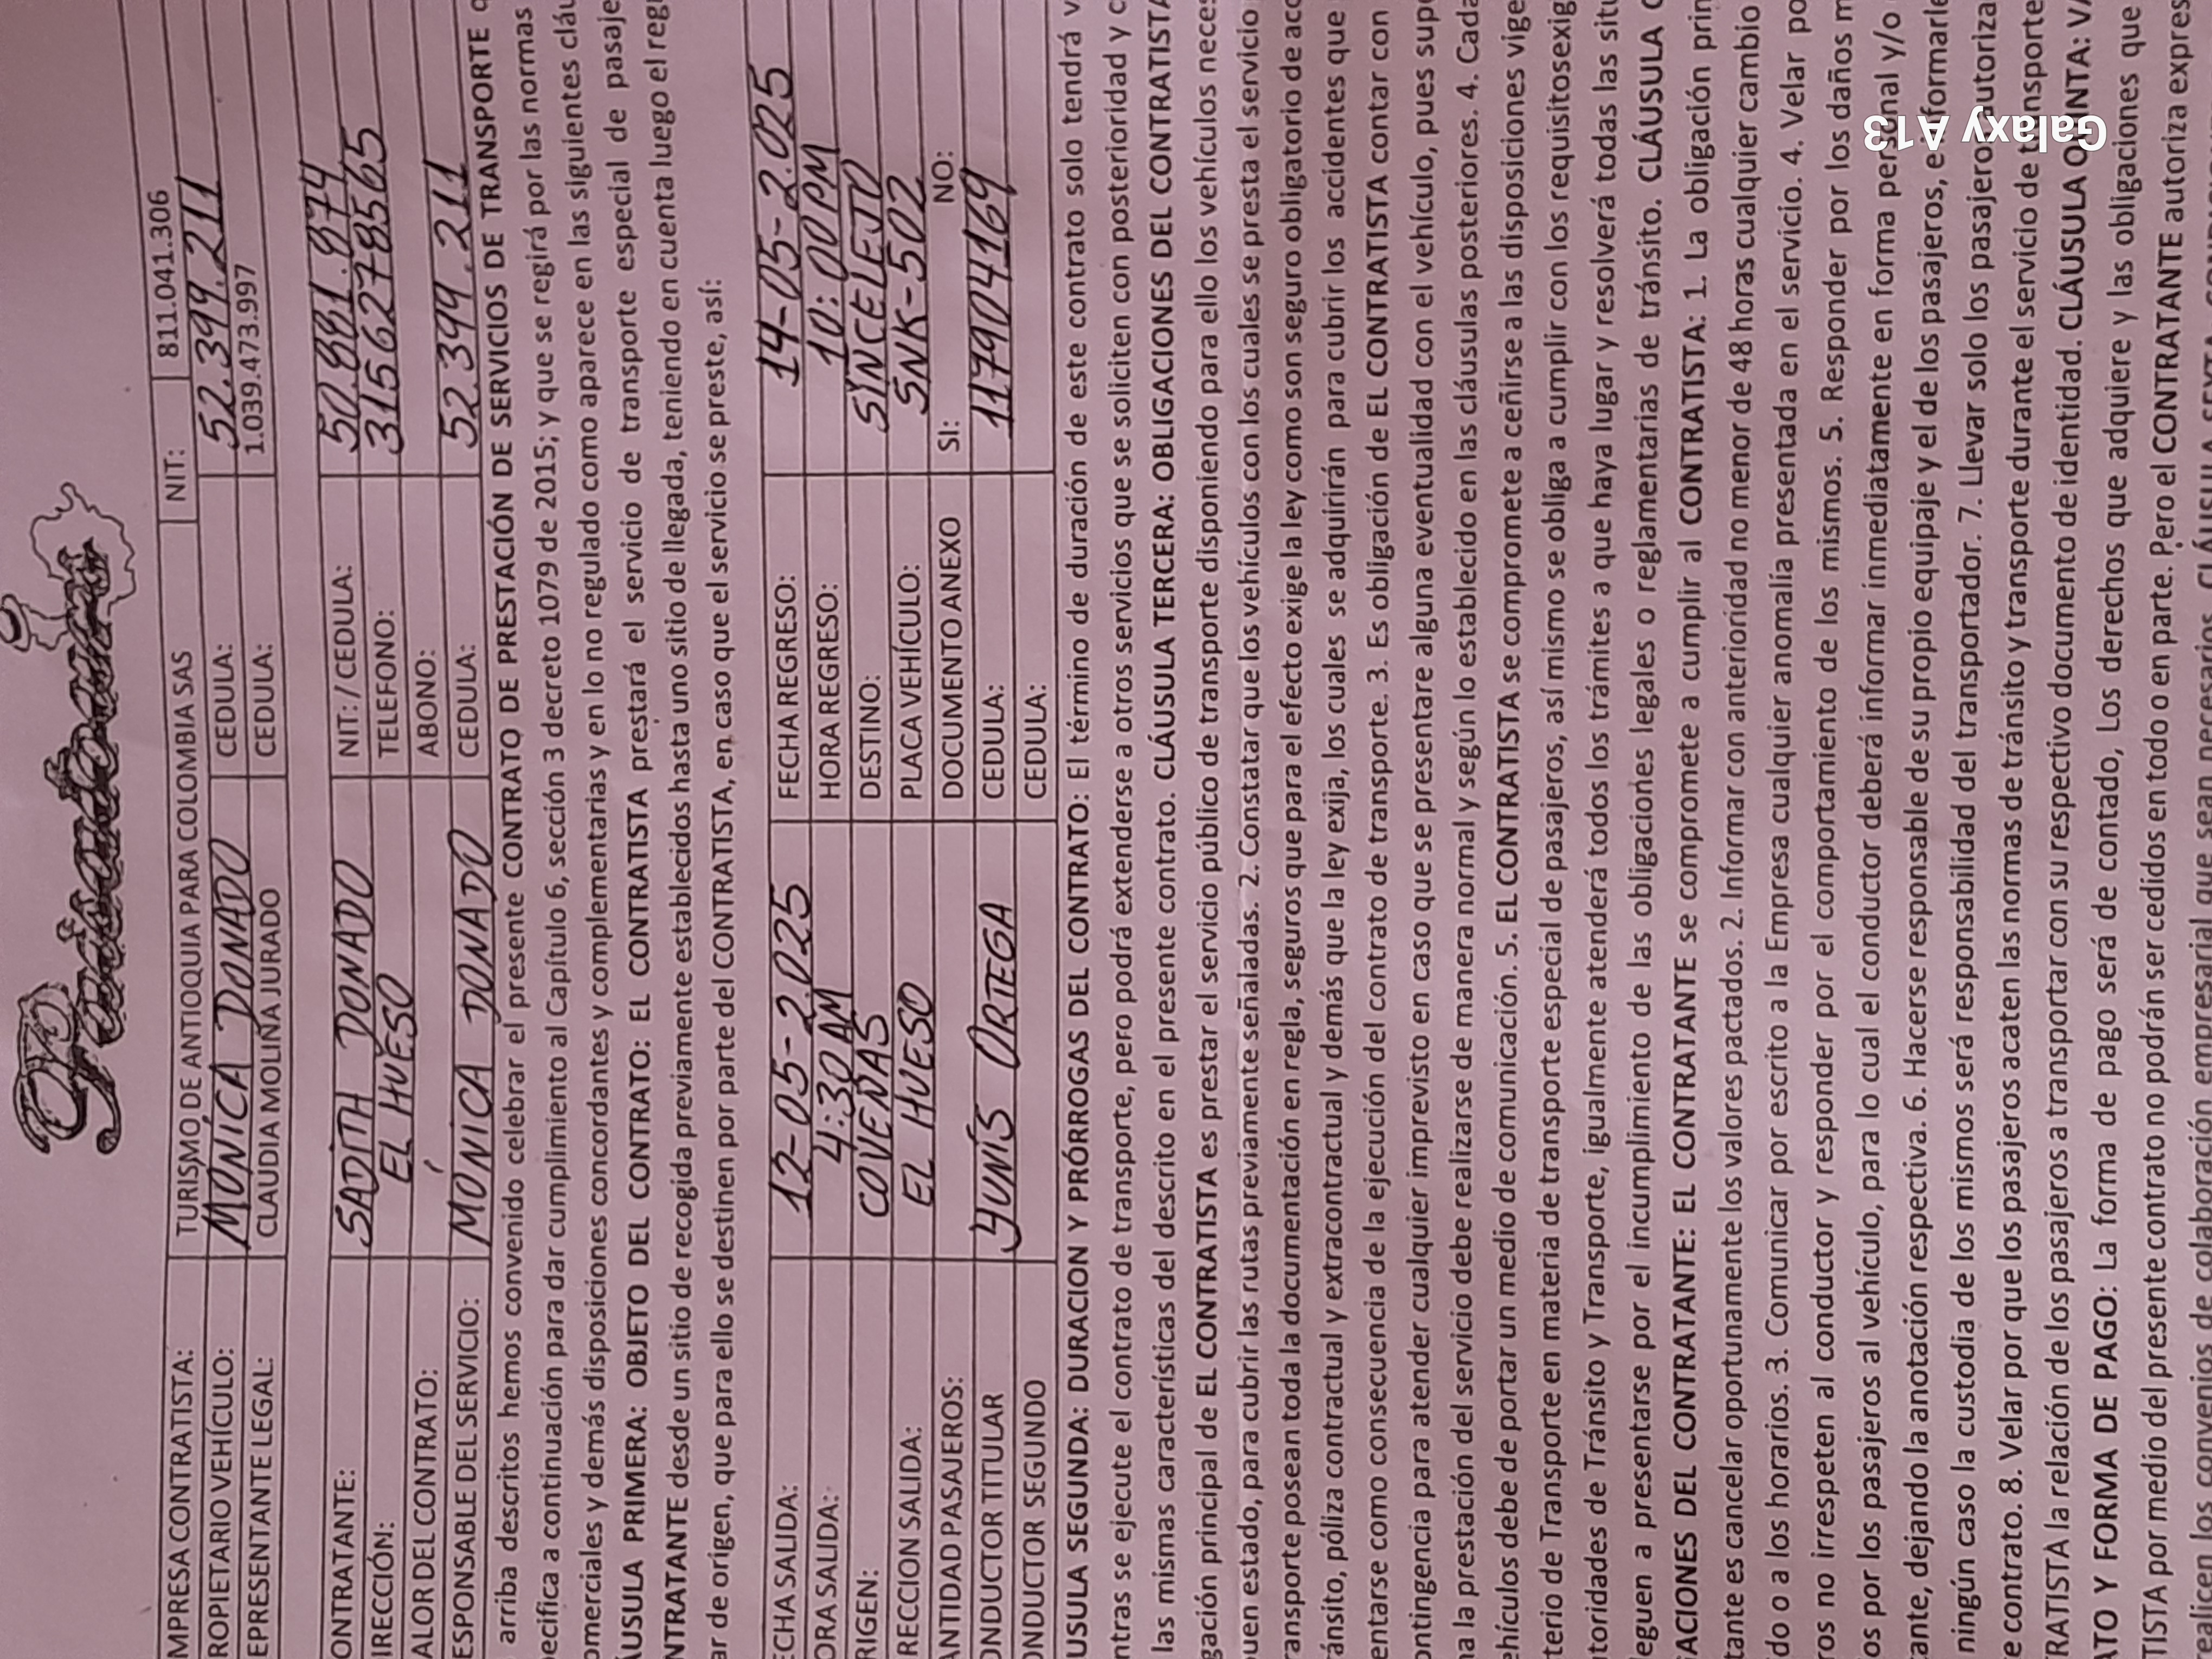 MPRESA CONTRATISTA: TURISMO DE ANTIOQUIA PARA COLOMBIA SAS NIT: 811.041.306
ROPIETARIO VEHÍCULO: MONICA DONADO CEDULA: 52.399.211
EPRESENTANTE LEGAL: CLAUDIA MOLINA JURADO CEDULA: 1.039.473.997
ONTRATANTE: SADITH DONADO NIT: / CEDULA: 50.881.974
IRECCIÓN: EL HUESO TELEFONO: 3156278565
ALOR DEL CONTRATO: ABONO:
ESPONSABLE DEL SERVICIO: MONICA DONADO CEDULA: 52.399.211
arriba descritos hemos convenido celebrar el presente CONTRATO DE PRESTACIÓN DE SERVICIOS DE TRANSPORTE
pecifica a continuación para dar cumplimiento al Capítulo 6, sección 3 decreto 1079 de 2015; y que se regirá por las normas
omerciales y demás disposiciones concordantes y complementarias y en lo no regulado como aparece en las siguientes cláu
ÁUSULA PRIMERA: OBJETO DEL CONTRATO: EL CONTRATISTA prestará el servicio de transporte especial de pasaje
NTRATANTE desde un sitio de recogida previamente establecidos hasta uno sitio de llegada, teniendo en cuenta luego el reg
ar de origen, que para ello se destinen por parte del CONTRATISTA, en caso que el servicio se preste, así:
ECHA SALIDA: 12-05-2.025 FECHA REGRESO: 14-05-2.025
ORA SALIDA: 4:30 AM HORA REGRESO: 10:00 PM
RIGEN: COVEÑAS DESTINO: SINCELEJO
RECCION SALIDA: EL HUESO PLACA VEHÍCULO: SNK-502
ANTIDAD PASAJEROS: DOCUMENTO ANEXO SI: NO:
ONDUCTOR TITULAR YUNIS ORTEGA CEDULA: 117904169
ONDUCTOR SEGUNDO CEDULA:
USULA SEGUNDA: DURACION Y PRÓRROGAS DEL CONTRATO: El término de duración de este contrato solo tendrá v
ntras se ejecute el contrato de transporte, pero podrá extenderse a otros servicios que se soliciten con posterioridad y c
las mismas características del descrito en el presente contrato. CLÁUSULA TERCERA: OBLIGACIONES DEL CONTRATISTA
gación principal de EL CONTRATISTA es prestar el servicio público de transporte disponiendo para ello los vehículos neces
uen estado, para cubrir las rutas previamente señaladas. 2. Constatar que los vehículos con los cuales se presta el servicio
ransporte posean toda la documentación en regla, seguros que para el efecto exige la ley como son seguro obligatorio de acc
ránsito, póliza contractual y extracontractual y demás que la ley exija, los cuales se adquirirán para cubrir los accidentes que
entarse como consecuencia de la ejecución del contrato de transporte. 3. Es obligación de EL CONTRATISTA contar con
ontingencia para atender cualquier imprevisto en caso que se presentare alguna eventualidad con el vehículo, pues sup
na la prestación del servicio debe realizarse de manera normal y según lo establecido en las cláusulas posteriores. 4. Cada
ehículos debe de portar un medio de comunicación. 5. EL CONTRATISTA se compromete a ceñirse a las disposiciones vige
terio de Transporte en materia de transporte especial de pasajeros, así mismo se obliga a cumplir con los requisitosexig
toridades de Tránsito y Transporte, igualmente atenderá todos los trámites a que haya lugar y resolverá todas las situ
leguen a presentarse por el incumplimiento de las obligaciones legales o reglamentarias de tránsito. CLÁUSULA C
ACIONES DEL CONTRATANTE: EL CONTRATANTE se compromete a cumplir al CONTRATISTA: 1. La obligación prin
tante es cancelar oportunamente los valores pactados. 2. Informar con anterioridad no menor de 48 horas cualquier cambio
do o a los horarios. 3. Comunicar por escrito a la Empresa cualquier anomalía presentada en el servicio. 4. Velar po
ros no irrespeten al conductor y responder por el comportamiento de los mismos. 5. Responder por los daños m
os por los pasajeros al vehículo, para lo cual el conductor deberá informar inmediatamente en forma personal y/o
ante, dejando la anotación respectiva. 6. Hacerse responsable de su propio equipaje y el de los pasajeros, e informarle
ningún caso la custodia de los mismos será responsabilidad del transportador. 7. Llevar solo los pasajeros autoriza
e contrato. 8. Velar por que los pasajeros acaten las normas de tránsito y transporte durante el servicio de transporte
RATISTA la relación de los pasajeros a transportar con su respectivo documento de identidad. CLÁUSULA QUINTA: VA
ATO Y FORMA DE PAGO: La forma de pago será de contado, Los derechos que adquiere y las obligaciones que
TISTA por medio del presente contrato no podrán ser cedidos en todo o en parte. Pero el CONTRATANTE autoriza expres
ealicen los convenios de colaboración empresarial que sean necesarios.
Galaxy A13